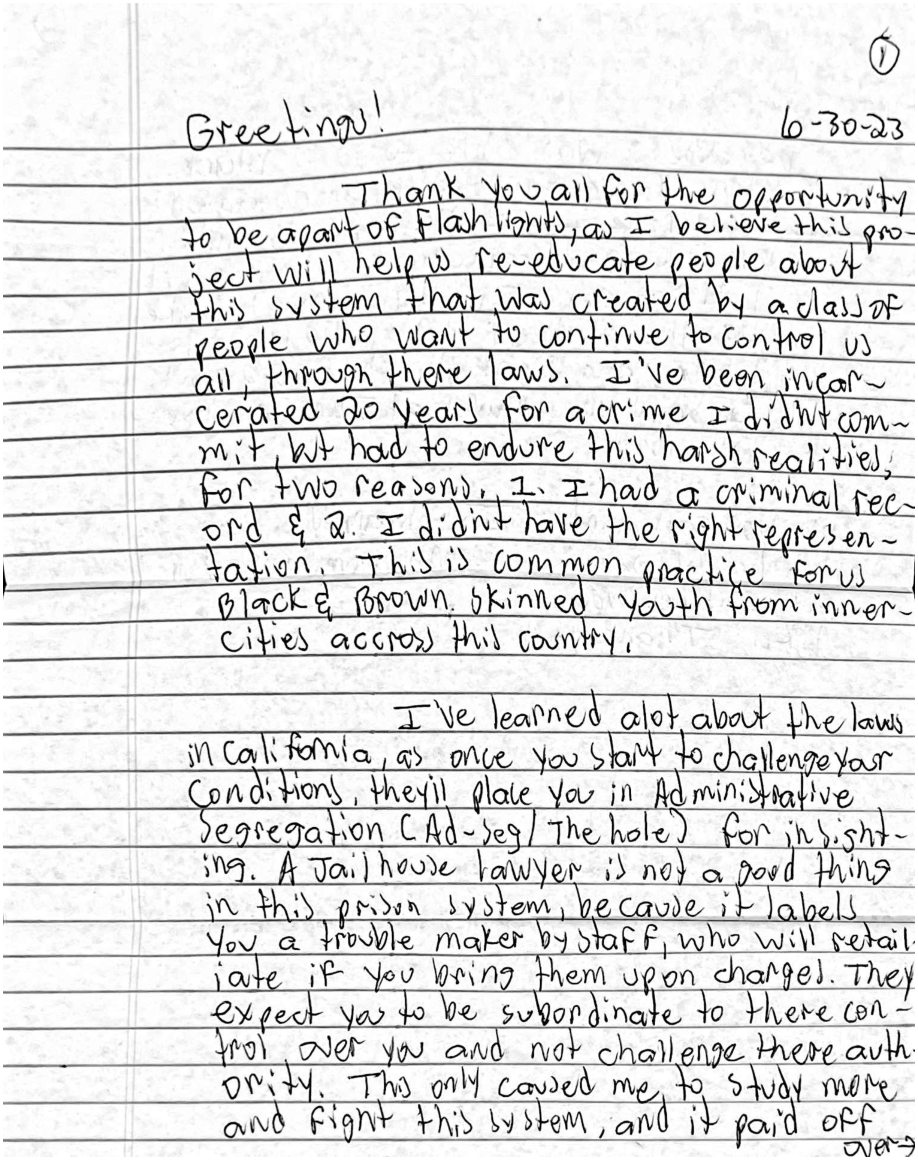 ①
Greetings! 6-30-23
Thank you all for the opportunity
to be apart of flashlights, as I believe this pro-
ject will help us re-educate people about
this system that was created by a class of
people who want to continue to control us
all, through there laws. I've been incar-
cerated 20 years for a crime I didn't com-
mit, but had to endure this harsh realities,
for two reasons. 1. I had a criminal rec-
ord & 2. I didn't have the right represen-
tation. This is common practice for us
Black & Brown skinned youth from inner-
cities accross this country.
I've learned alot about the laws
in California, as once you start to challenge your
conditions, they'll place you in Administrative
Segregation (Ad-Seg/The hole) for insight-
ing. A Jailhouse lawyer is not a good thing
in this prison system, because it labels
you a trouble maker by staff, who will retail-
iate if you bring them upon charges. They
expect you to be subordinate to there con-
trol over you and not challenge there auth-
ority. This only caused me to study more
and fight this system, and it paid off
over→